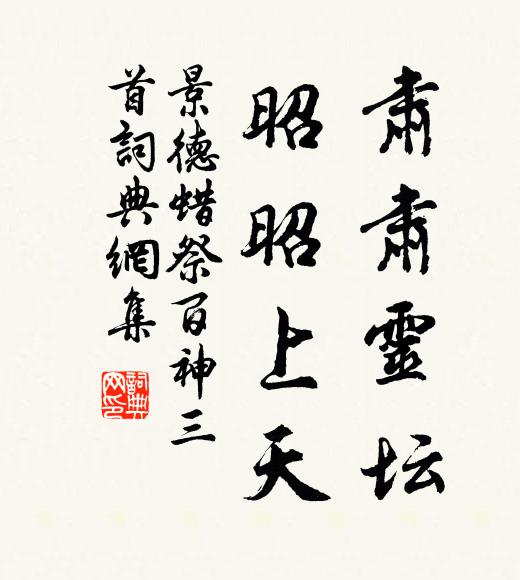 肃肃靈坛
昭昭上天
景德蜡祭百神三
首詞典網集
詞典
网印